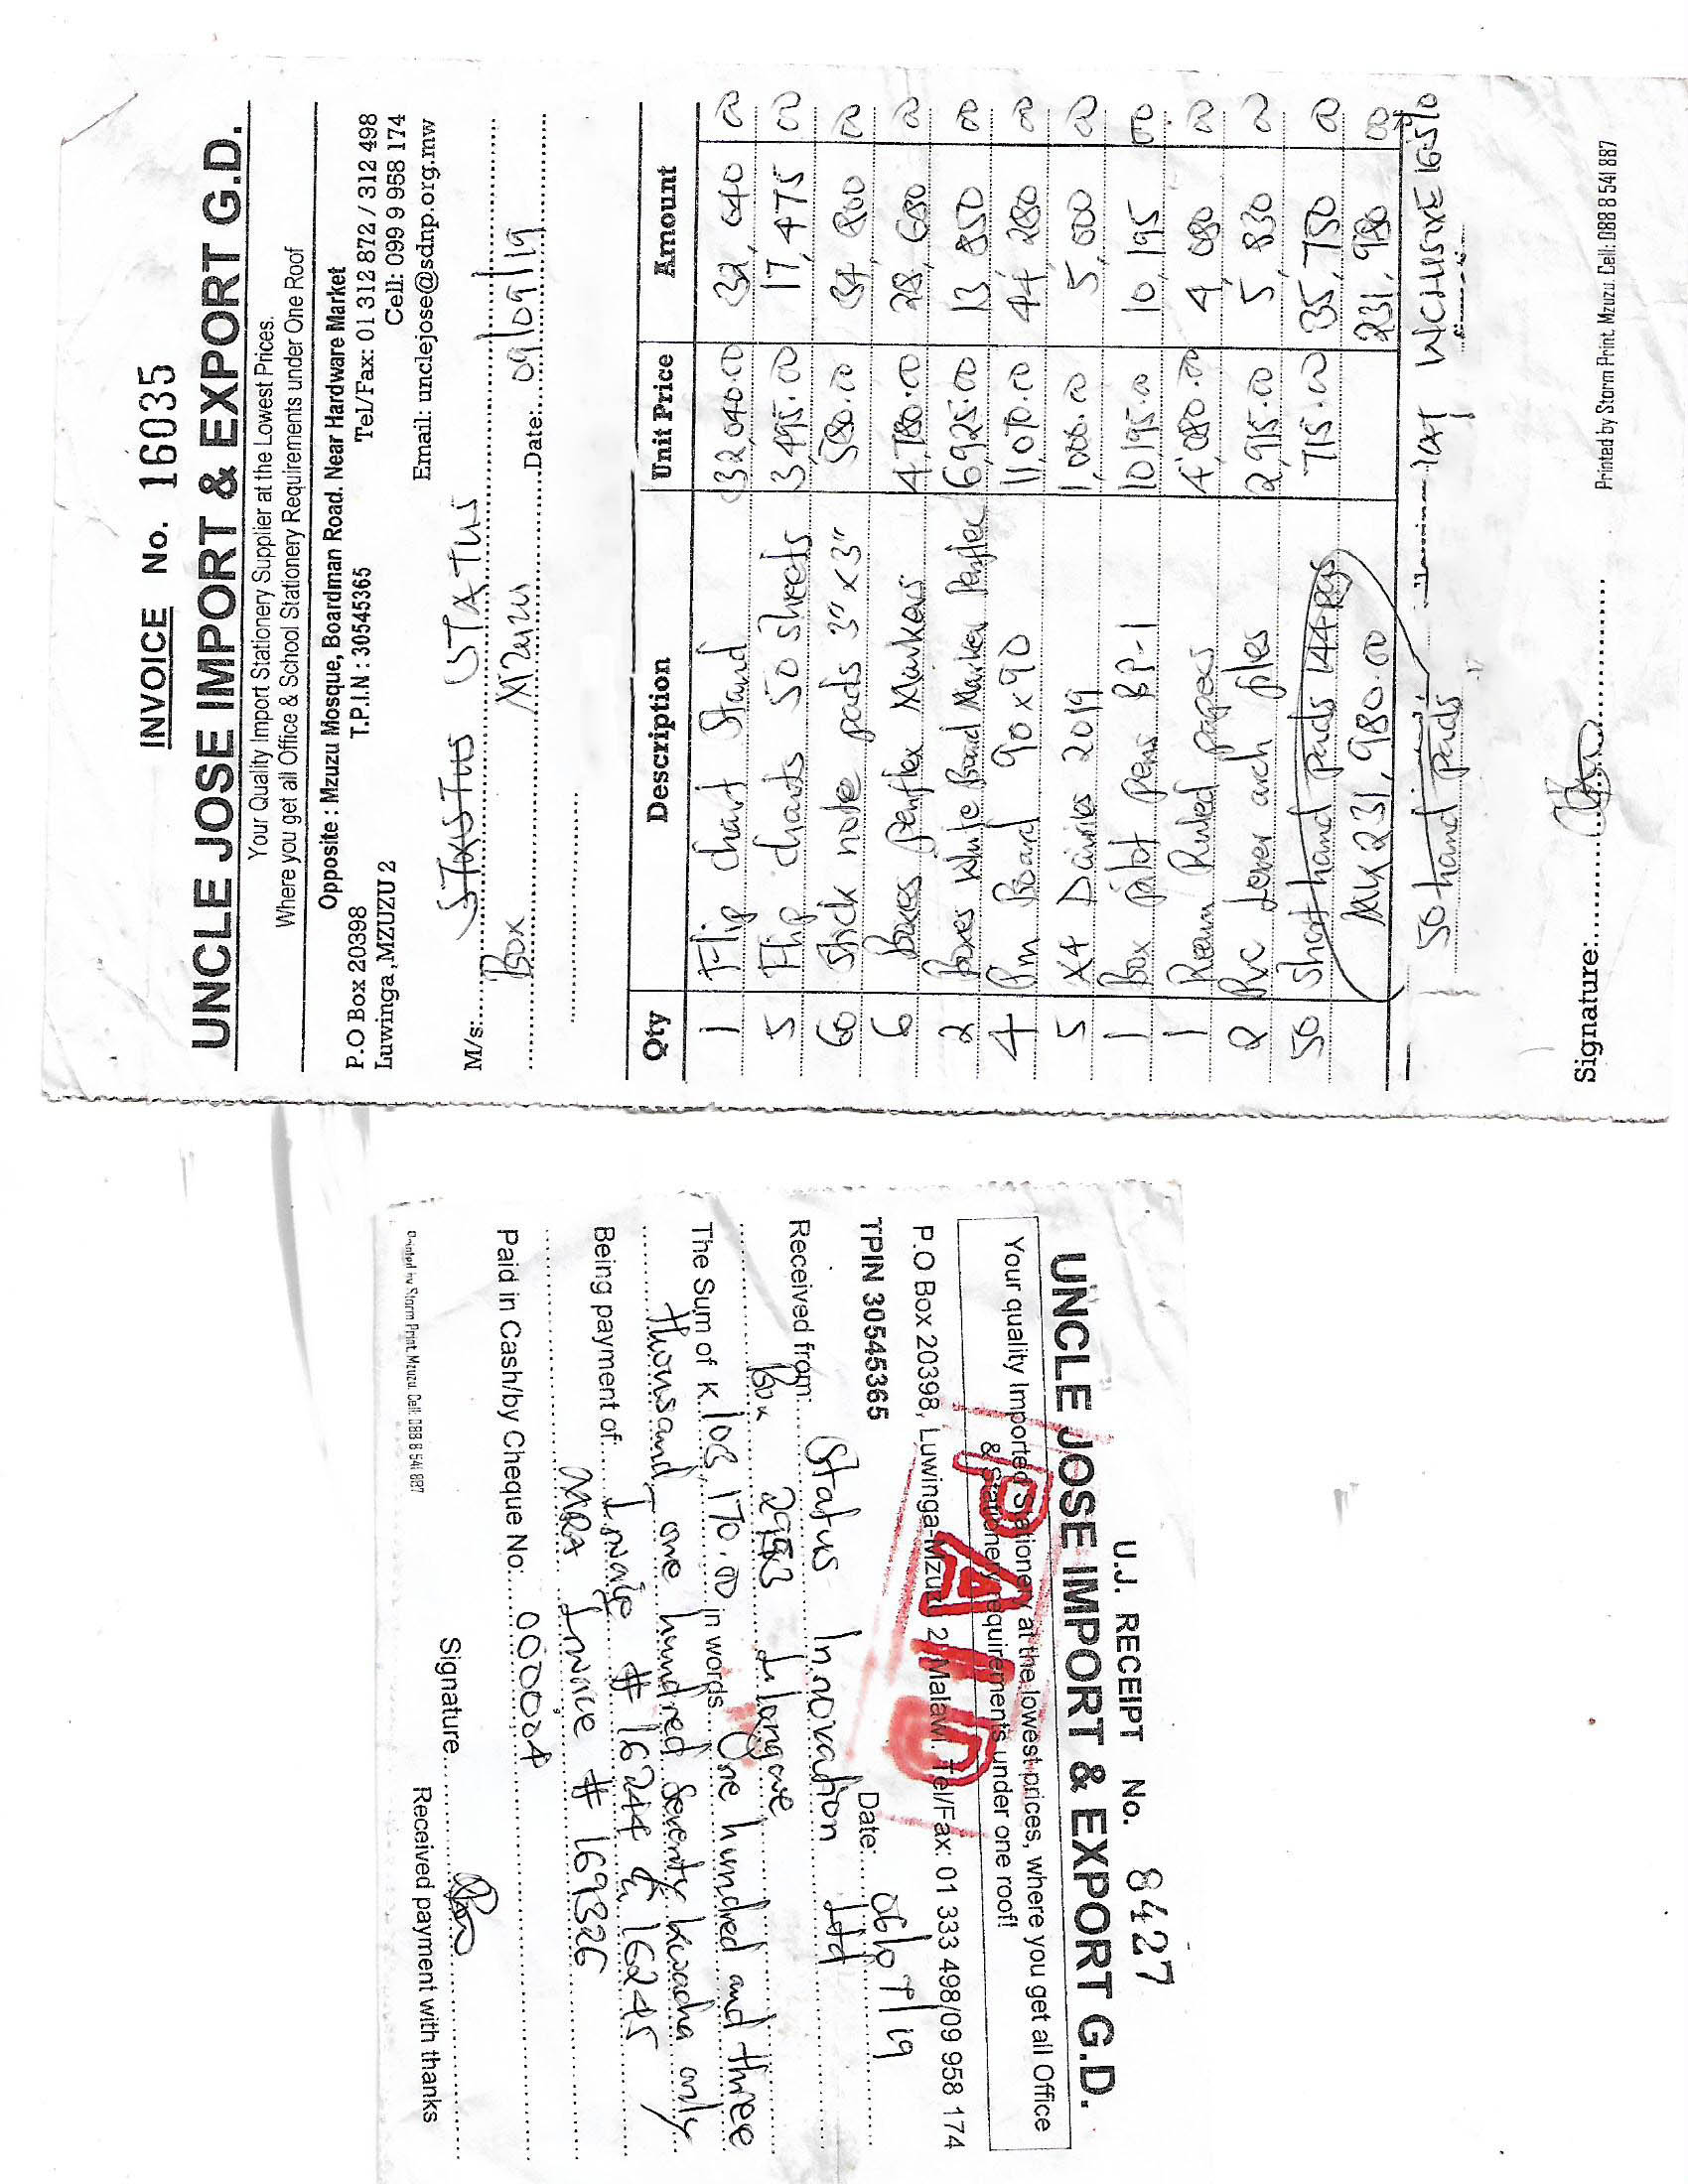 INVOICE No. 16035
UNCLE JOSE IMPORT & EXPORT G.D.
Your Quality Import Stationery Supplier at the Lowest Prices.
Where you get all Office & School Stationery Requirements under One Roof
Opposite : Mzuzu Mosque, Boardman Road. Near Hardware Market
P.O Box 20398 T.P.I.N : 30545365 Tel/Fax: 01 312 872 / 312 498
Luwinga ,MZUZU 2 Cell: 099 9 958 174
Email: unclejose@sdnp.org.mw
M/s: STATUS
Box Mzuzu Date: 09/09/19
Qty Description Unit Price Amount
1 Flip chart Stand 32,040.00 32,040 00
5 Flip charts 50 sheets 3,495.00 17,475 00
60 Stick note pads 3" x 3" 580.00 34,800 00
6 Boxes penflex Markers 4,780.00 28,680 00
2 Boxes White Board Marker Penflex 6,925.00 13 850 00
4 Pm Board 90 x 90 11,070.00 44,280 00
5 A4 Dairies 2019 1,000.00 5,000 00
1 Box pilot pens BP-1 10195.00 10,195 00
1 Ream Ruled papers 4,080.00 4 080 00
2 Pvc Lever arch files 2,915.00 5,830 00
50 Short hand pads 144 pgs 715.00 35,750 00
MK 231,980.00 231,980 00
VAT INCLUSIVE 16.5%
50 hand pads
Signature:
Printed by Storm Print. Mzuzu. Cell: 088 8 541 887
U.J. RECEIPT No. 8427
UNCLE JOSE IMPORT & EXPORT G.D.
Your quality Imported Stationery at the lowest prices, where you get all Office
& Stationery requirements under one roof!
P.O Box 20398, Luwinga-Mzuzu 2, Malawi. Tel/Fax: 01 333 498/09 958 174
PAID
TPIN 30545365 Date: 06/09/19
Received from: Status Innovation Ltd
Box Lilongwe
The Sum of K 103,170.00 in words One hundred and three
thousand, one hundred Seventy kwacha only
Being payment of: Invoice # 16244 & 16245
MRA Invoice # 169326
Paid in Cash/by Cheque No: 000004
Signature
Received payment with thanks
Printed by Storm Print. Mzuzu. Cell: 088 8 541 887